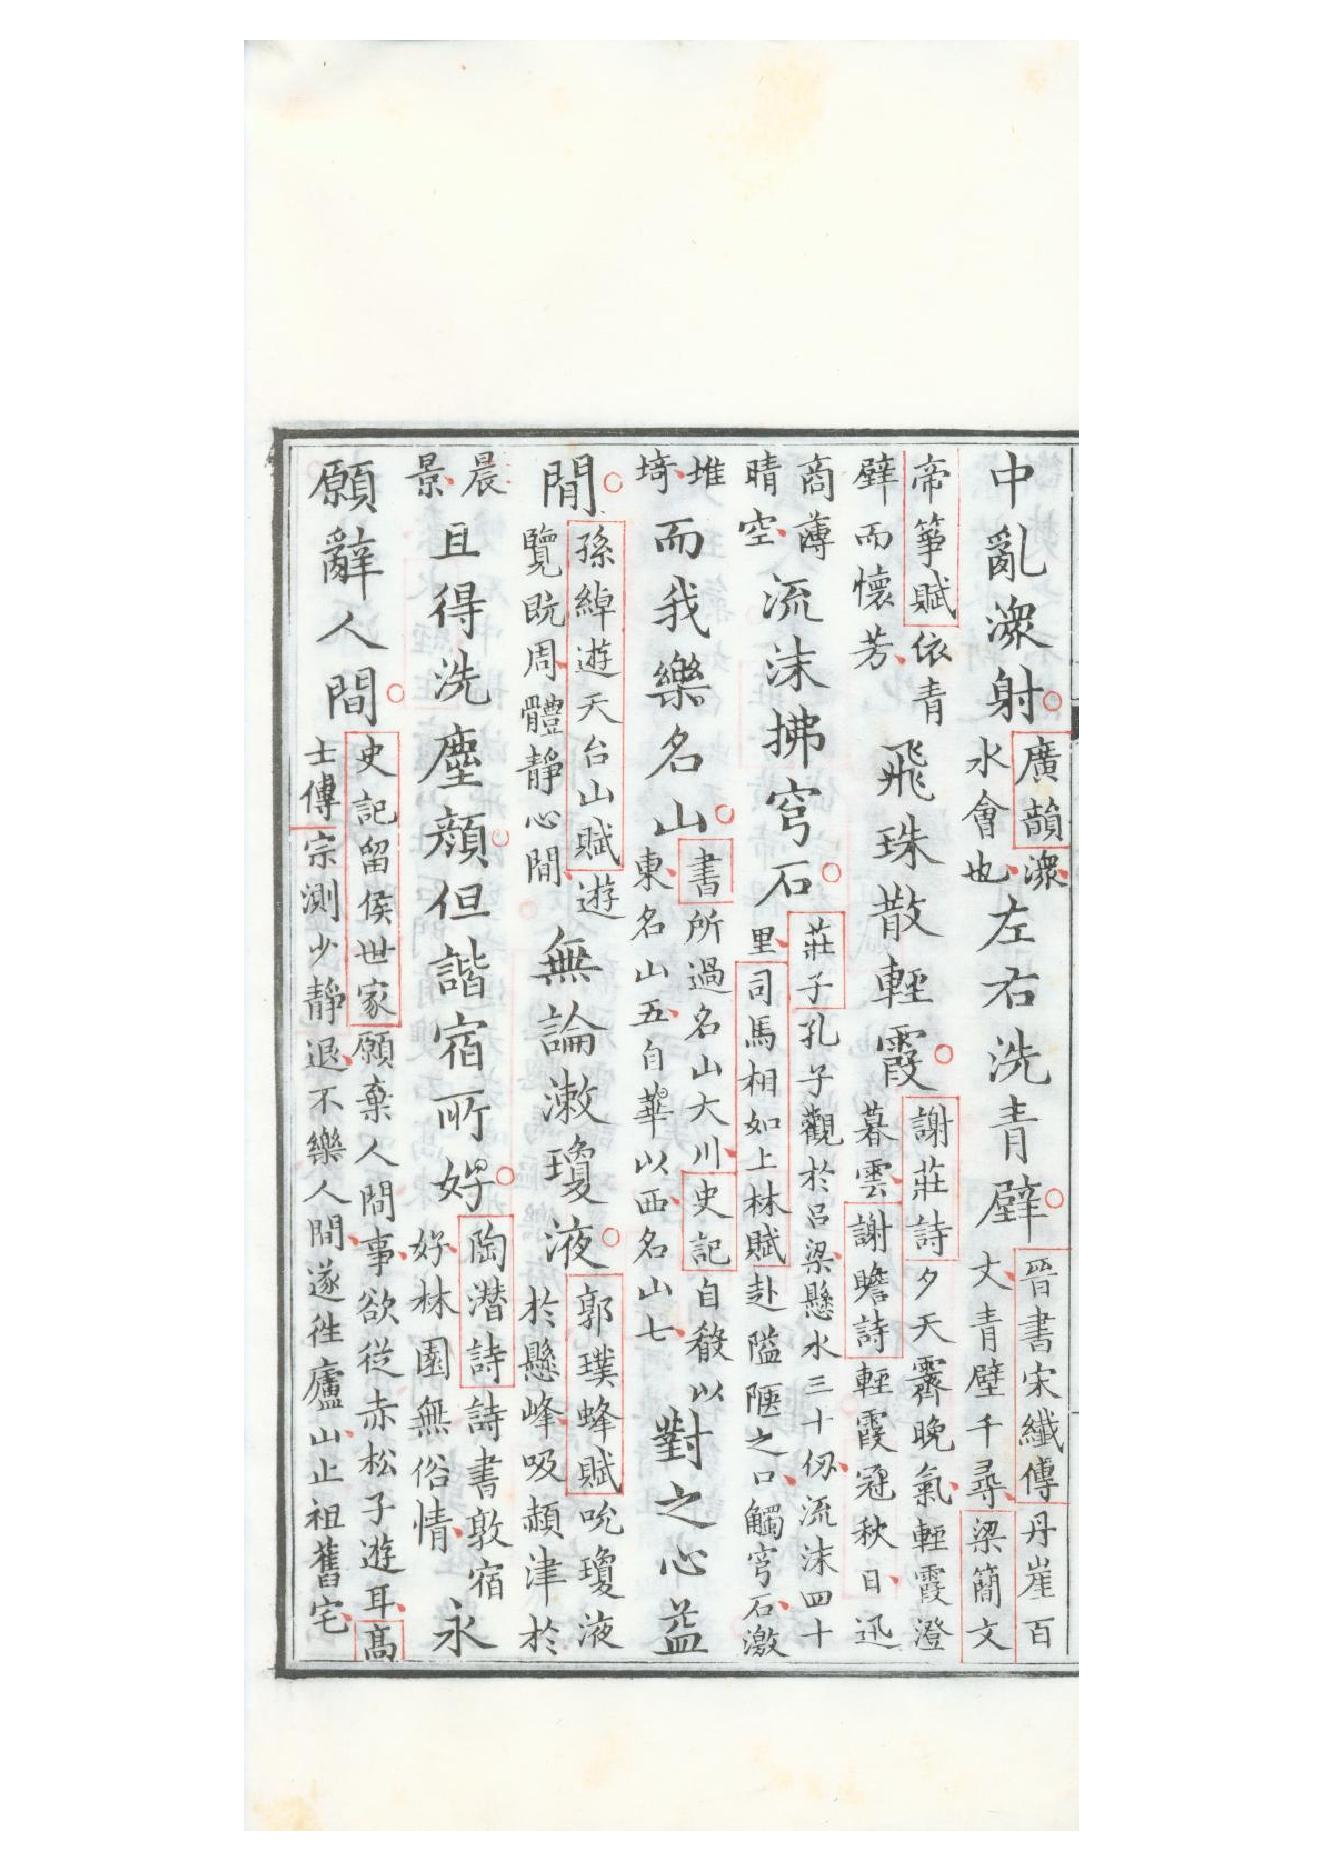 中亂潈射廣韻潈水會也左右洗青壁晉書宋纖傳丹崖百丈青壁千尋梁簡文
帝箏賦依青壁而懷芳飛珠散輕霞謝莊詩夕天霽晚氣輕霞澄暮雲謝瞻詩輕霞冠秋日迅
商薄晴空流沫拂穹石莊子孔子觀於呂梁懸水三十仞流沫四十里司馬相如上林賦赴隘陿之口觸穹石激
堆埼而我樂名山書所過名山大川史記自殽以東名山五自華以西名山七對之心益
閒孫綽遊天台山賦遊覽既周體靜心閒無論漱瓊液郭璞蜂賦吮瓊液於懸峰吸赬津於
晨景且得洗塵顏但諧宿所好陶潛詩詩書敦宿好林園無俗情永
願辭人間史記留侯世家願棄人間事欲從赤松子遊耳高士傳宗測少靜退不樂人間遂徃廬山止祖舊宅